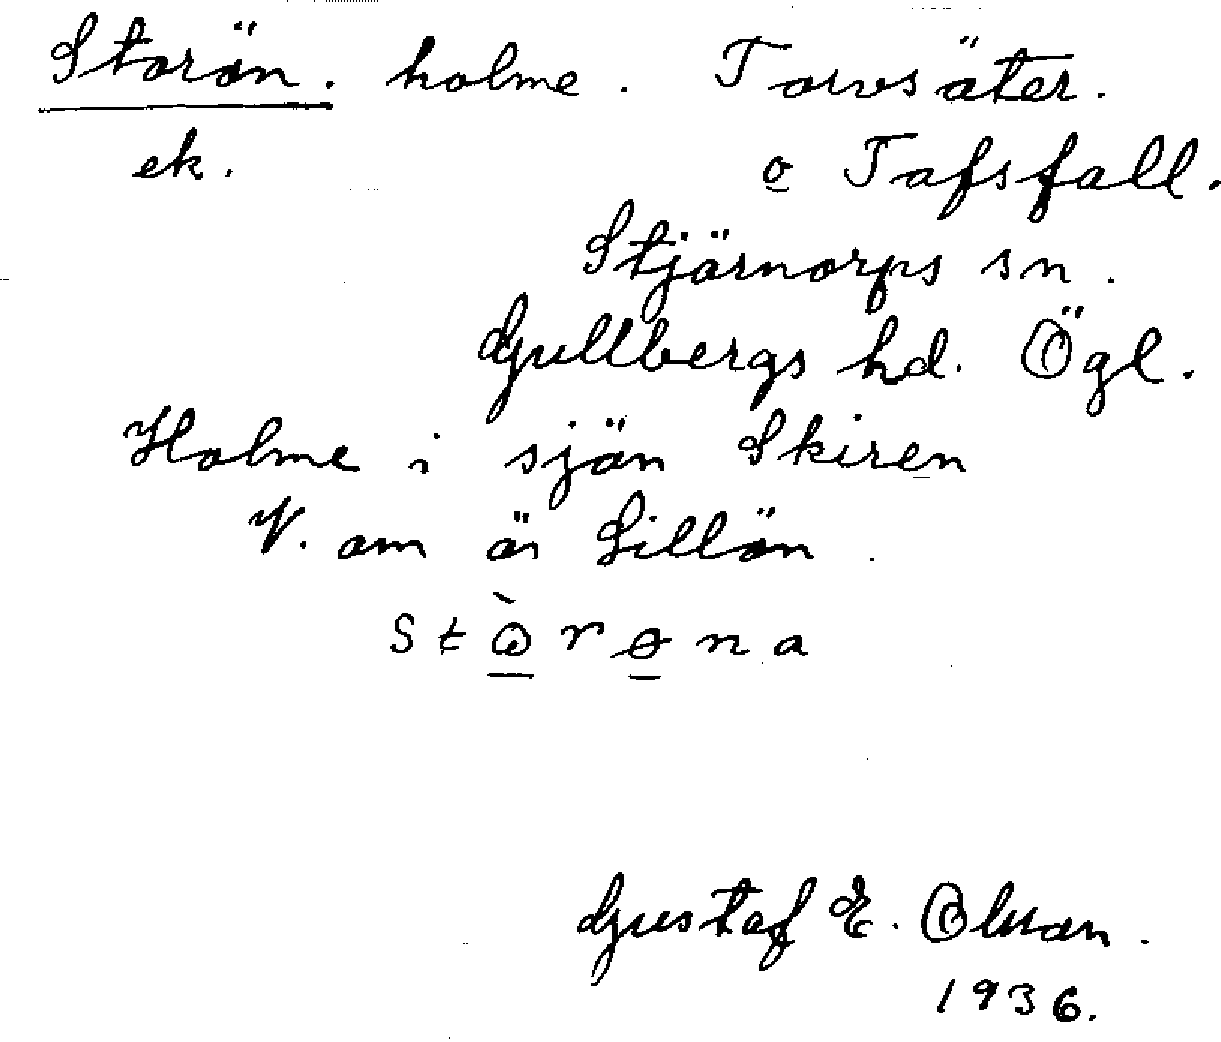 Storön. holme. Torvsäter.
ek. o Tafsfall.
Stjärnorps sn.
Gullbergs hd. Ögl.
Holme i sjön Skiren
V. om är Lillön.
Stòrøna
Gustaf E. Olsson.
1936.